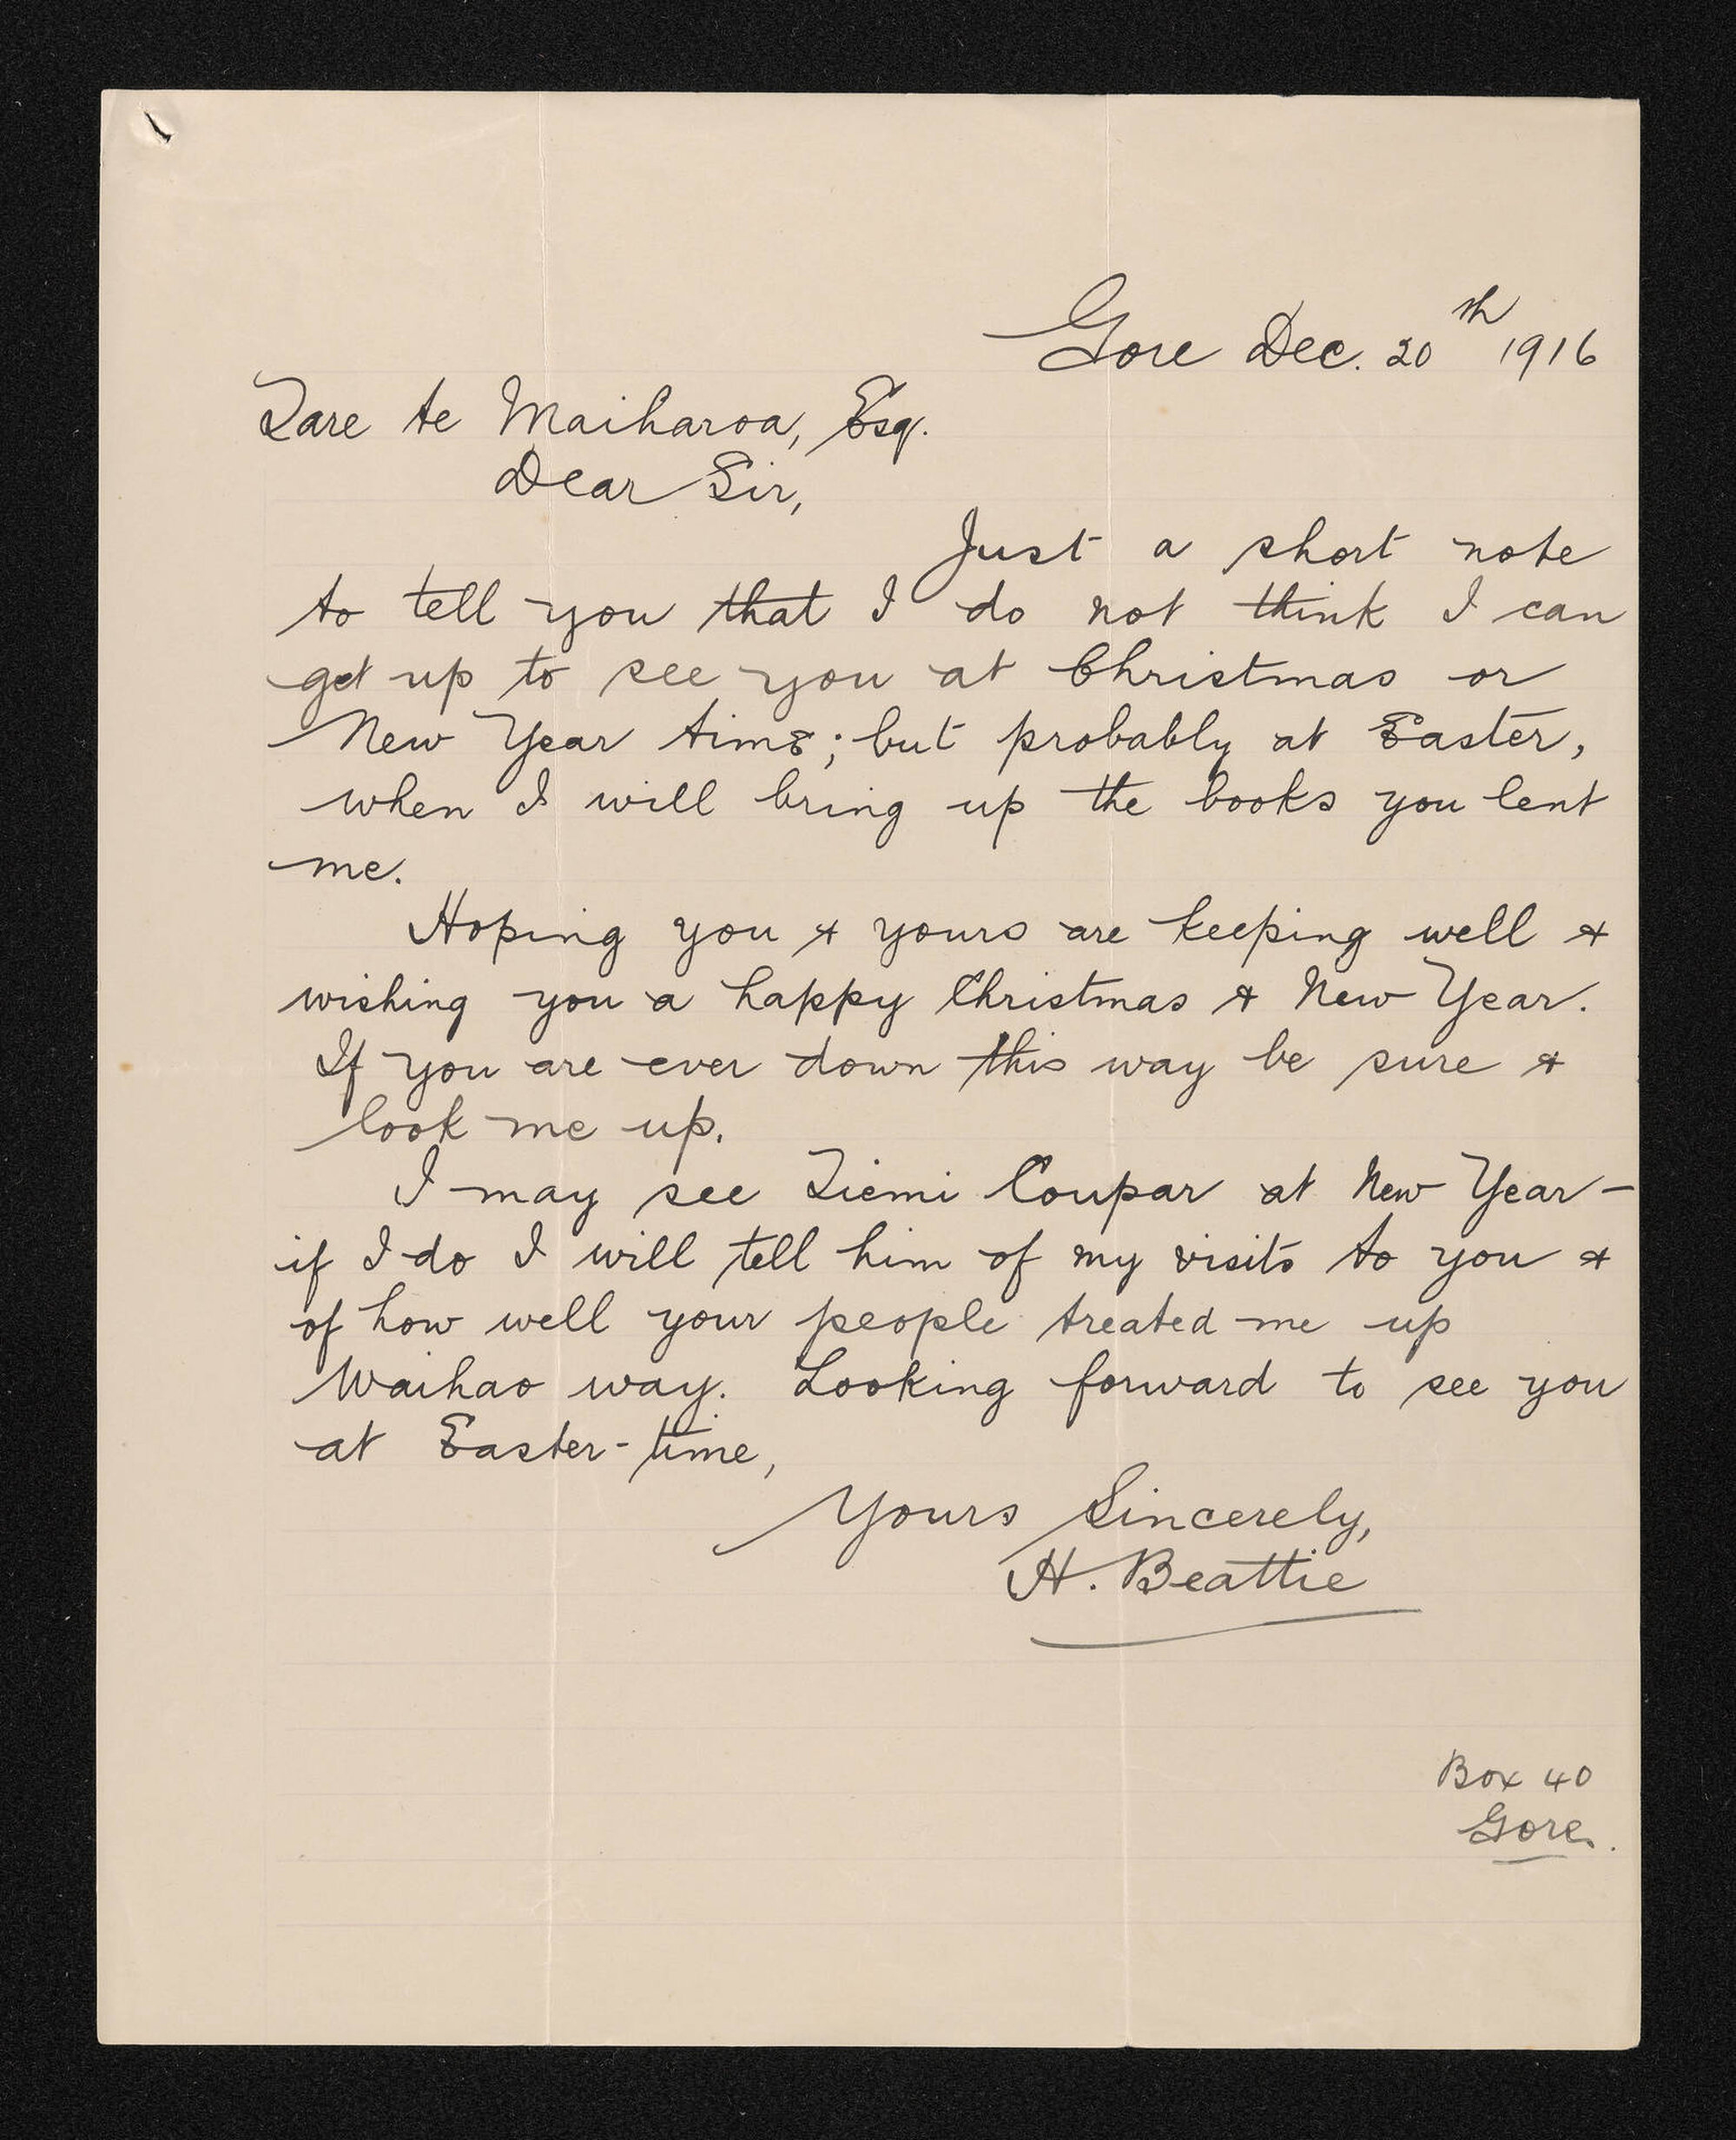 Gore Dec. 20th 1916
Tare te Maiharoa, Esq.
Dear Sir,
Just a short note
to tell you that I do not think I can
get up to see you at Christmas or
New Year time; but probably at Easter,
when I will bring up the books you lent
me.
Hoping you & yours are keeping well &
wishing you a happy Christmas & New Year.
If you are ever down this way be sure &
look me up.
I may see Tiemi Coupar at New Year –
if I do I will tell him of my visits to you &
of how well your people treated me up
Waihao way. Looking forward to see you
at Easter-time,
Yours Sincerely,
H. Beattie
Box 40
Gore.